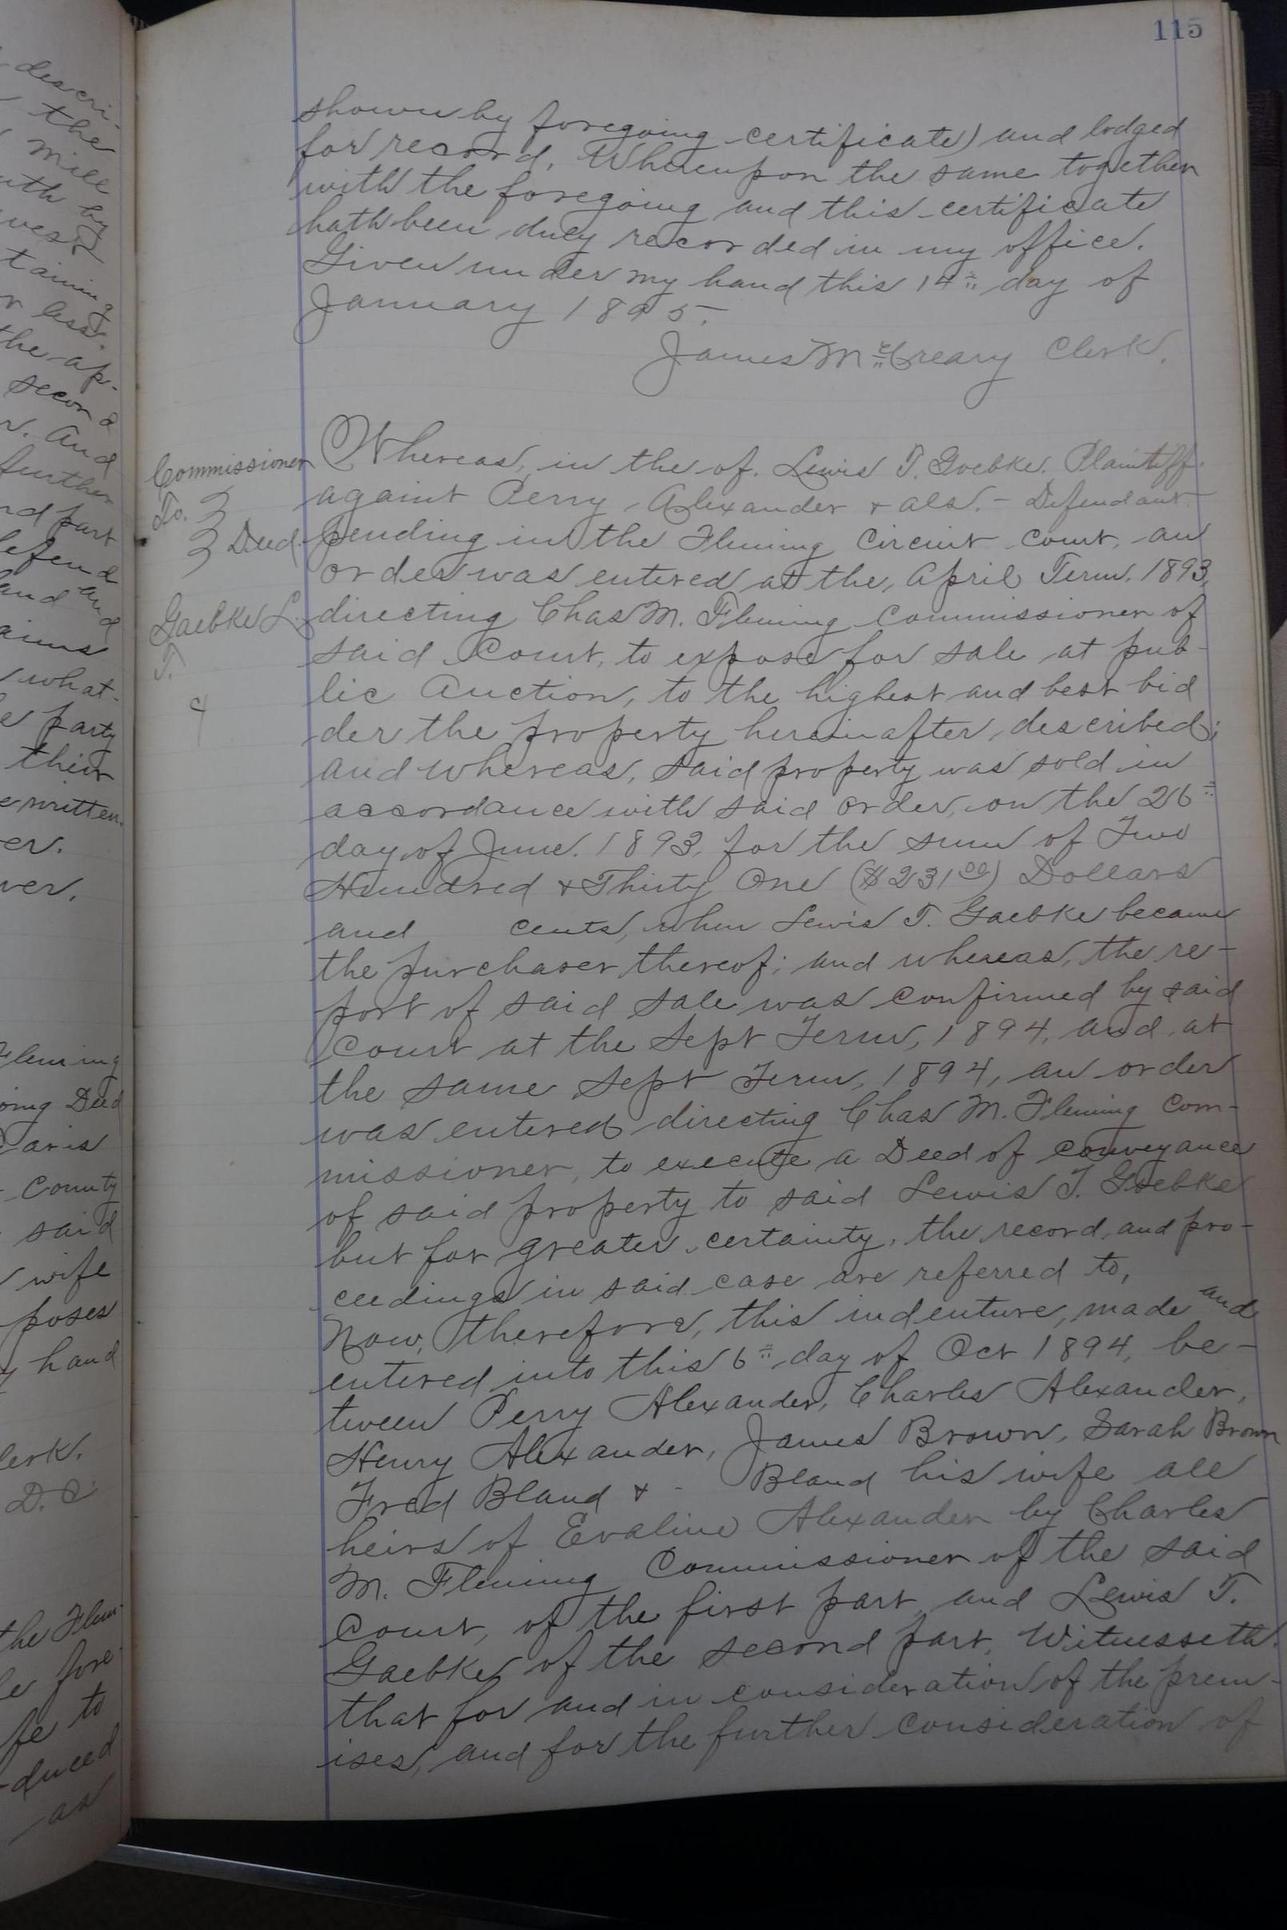 115
shown by foregoing certificate) and lodged
for record, Whereupon the same together
with the foregoing and this certificate
hath been duly recorded in my office.
Given under my hand this 14th day of
January 1895.
James McCreary Clerk.
Commissioner
To.
Deed
Gaebke L.
T.
Whereas, in the of. Lewis T. Goebke. Plaintiff.
againt Perry Alexander & als. - Defendant
pending in the Fleming Circuit court, an
order was entered at the, April Term. 1893,
directing Chas M. Fleming Commissioner of
said Court, to expose for sale at pub-
lic Auction, to the highest and best bid
der the property hereinafter, described;
and whereas, said property was sold in
accordance with said order, on the 26th
day of June. 1893, for the sum of Two
Hundred & Thirty One ($231.00) Dollars
and cents, when Lewis T. Gaebke became
the purchaser thereof; and whereas, the re-
port of said sale was confirmed by said
Court at the Sept Term, 1894, and at
the same Sept Term, 1894, an order
was entered directing Chas M. Fleming Com-
missioner, to execute a Deed of conveyance
of said property to said Lewis T. Goebke
but for greater certainty, the record, and pro-
ceedings in said case are referred to,
Now, therefore, this indenture, made and
entered into this 6th day of Oct 1894, be-
tween Perry Alexander, Charles Alexander,
Henry Alexander, James Brown, Sarah Brown
Fred Bland & - Bland his wife all
heirs of Evaline Alexander by Charles
M. Fleming Commissioner of the said
Court, of the first part, and Lewis T.
Gaebke of the second part, Witnesseth
that for and in consideration of the prem-
ises, and for the further consideration of